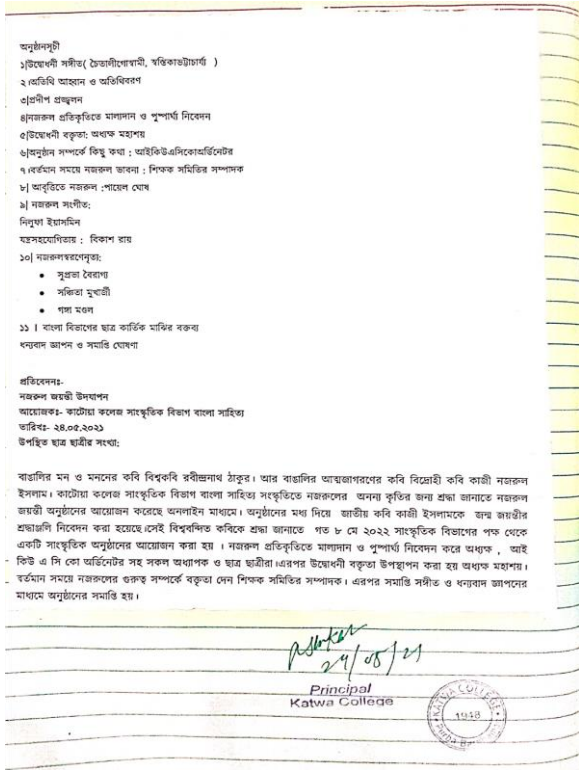 অনুষ্ঠানসূচী
১|উদ্বোধনী সঙ্গীত( চৈতালীগোস্বামী, স্বস্তিকাভট্টাচার্য্য )
২।অতিথি আহ্বান ও অতিথিবরণ
৩|প্রদীপ প্রজ্জ্বলন
৪|নজরুল প্রতিকৃতিতে মালাদান ও পুষ্পার্ঘ্য নিবেদন
৫|উদ্বোধনী বক্তৃতা: অধ্যক্ষ মহাশয়
৬|অনুষ্ঠান সম্পর্কে কিছু কথা : আইকিউএসিকোঅর্ডিনেটর
৭।বর্তমান সময়ে নজরুল ভাবনা : শিক্ষক সমিতির সম্পাদক
৮| আবৃত্তিতে নজরুল :পায়েল ঘোষ
৯| নজরুল সংগীত:
নিলুফা ইয়াসমিন
যন্ত্রসহযোগিতায় : বিকাশ রায়
১০| নজরুলস্বরণেনৃত্য:
• সুপ্রভা বৈরাগ্য
• সঞ্চিতা মুখার্জী
• গঙ্গা মণ্ডল
১১ । বাংলা বিভাগের ছাত্র কার্তিক মাঝির বক্তব্য
ধন্যবাদ জ্ঞাপন ও সমাপ্তি ঘোষণা
প্রতিবেদনঃ-
নজরুল জয়ন্তী উদযাপন
আয়োজকঃ- কাটোয়া কলেজ সাংস্কৃতিক বিভাগ বাংলা সাহিত্য
তারিখঃ- ২৪.০৫.২০২১
উপস্থিত ছাত্র ছাত্রীর সংখ্যা:
বাঙালির মন ও মননের কবি বিশ্বকবি রবীন্দ্রনাথ ঠাকুর। আর বাঙালির আত্মজাগরণের কবি বিদ্রোহী কবি কাজী নজরুল
ইসলাম। কাটোয়া কলেজ সাংস্কৃতিক বিভাগ বাংলা সাহিত্য সংস্কৃতিতে নজরুলের অনন্য কৃতির জন্য শ্রদ্ধা জানাতে নজরুল
জয়ন্তী অনুষ্ঠানের আয়োজন করেছে অনলাইন মাধ্যমে। অনুষ্ঠানের মধ্য দিয়ে জাতীয় কবি কাজী ইসলামকে জন্ম জয়ন্তীর
শ্রদ্ধাঞ্জলি নিবেদন করা হয়েছে।সেই বিশ্ববন্দিত কবিকে শ্রদ্ধা জানাতে গত ৮ মে ২০২২ সাংস্কৃতিক বিভাগের পক্ষ থেকে
একটি সাংস্কৃতিক অনুষ্ঠানের আয়োজন করা হয় । নজরুল প্রতিকৃতিতে মালাদান ও পুষ্পার্ঘ্য নিবেদন করে অধ্যক্ষ , আই
কিউ এ সি কো অর্ডিনেটর সহ সকল অধ্যাপক ও ছাত্র ছাত্রীরা।এরপর উদ্বোধনী বক্তৃতা উপস্থাপন করা হয় অধ্যক্ষ মহাশয়।
বর্তমান সময়ে নজরুলের গুরুত্ব সম্পর্কে বক্তৃতা দেন শিক্ষক সমিতির সম্পাদক। এরপর সমাপ্তি সঙ্গীত ও ধন্যবাদ জ্ঞাপনের
মাধ্যমে অনুষ্ঠানের সমাপ্তি হয়।
Principal
Katwa College
KATWA COLLEGE
1948